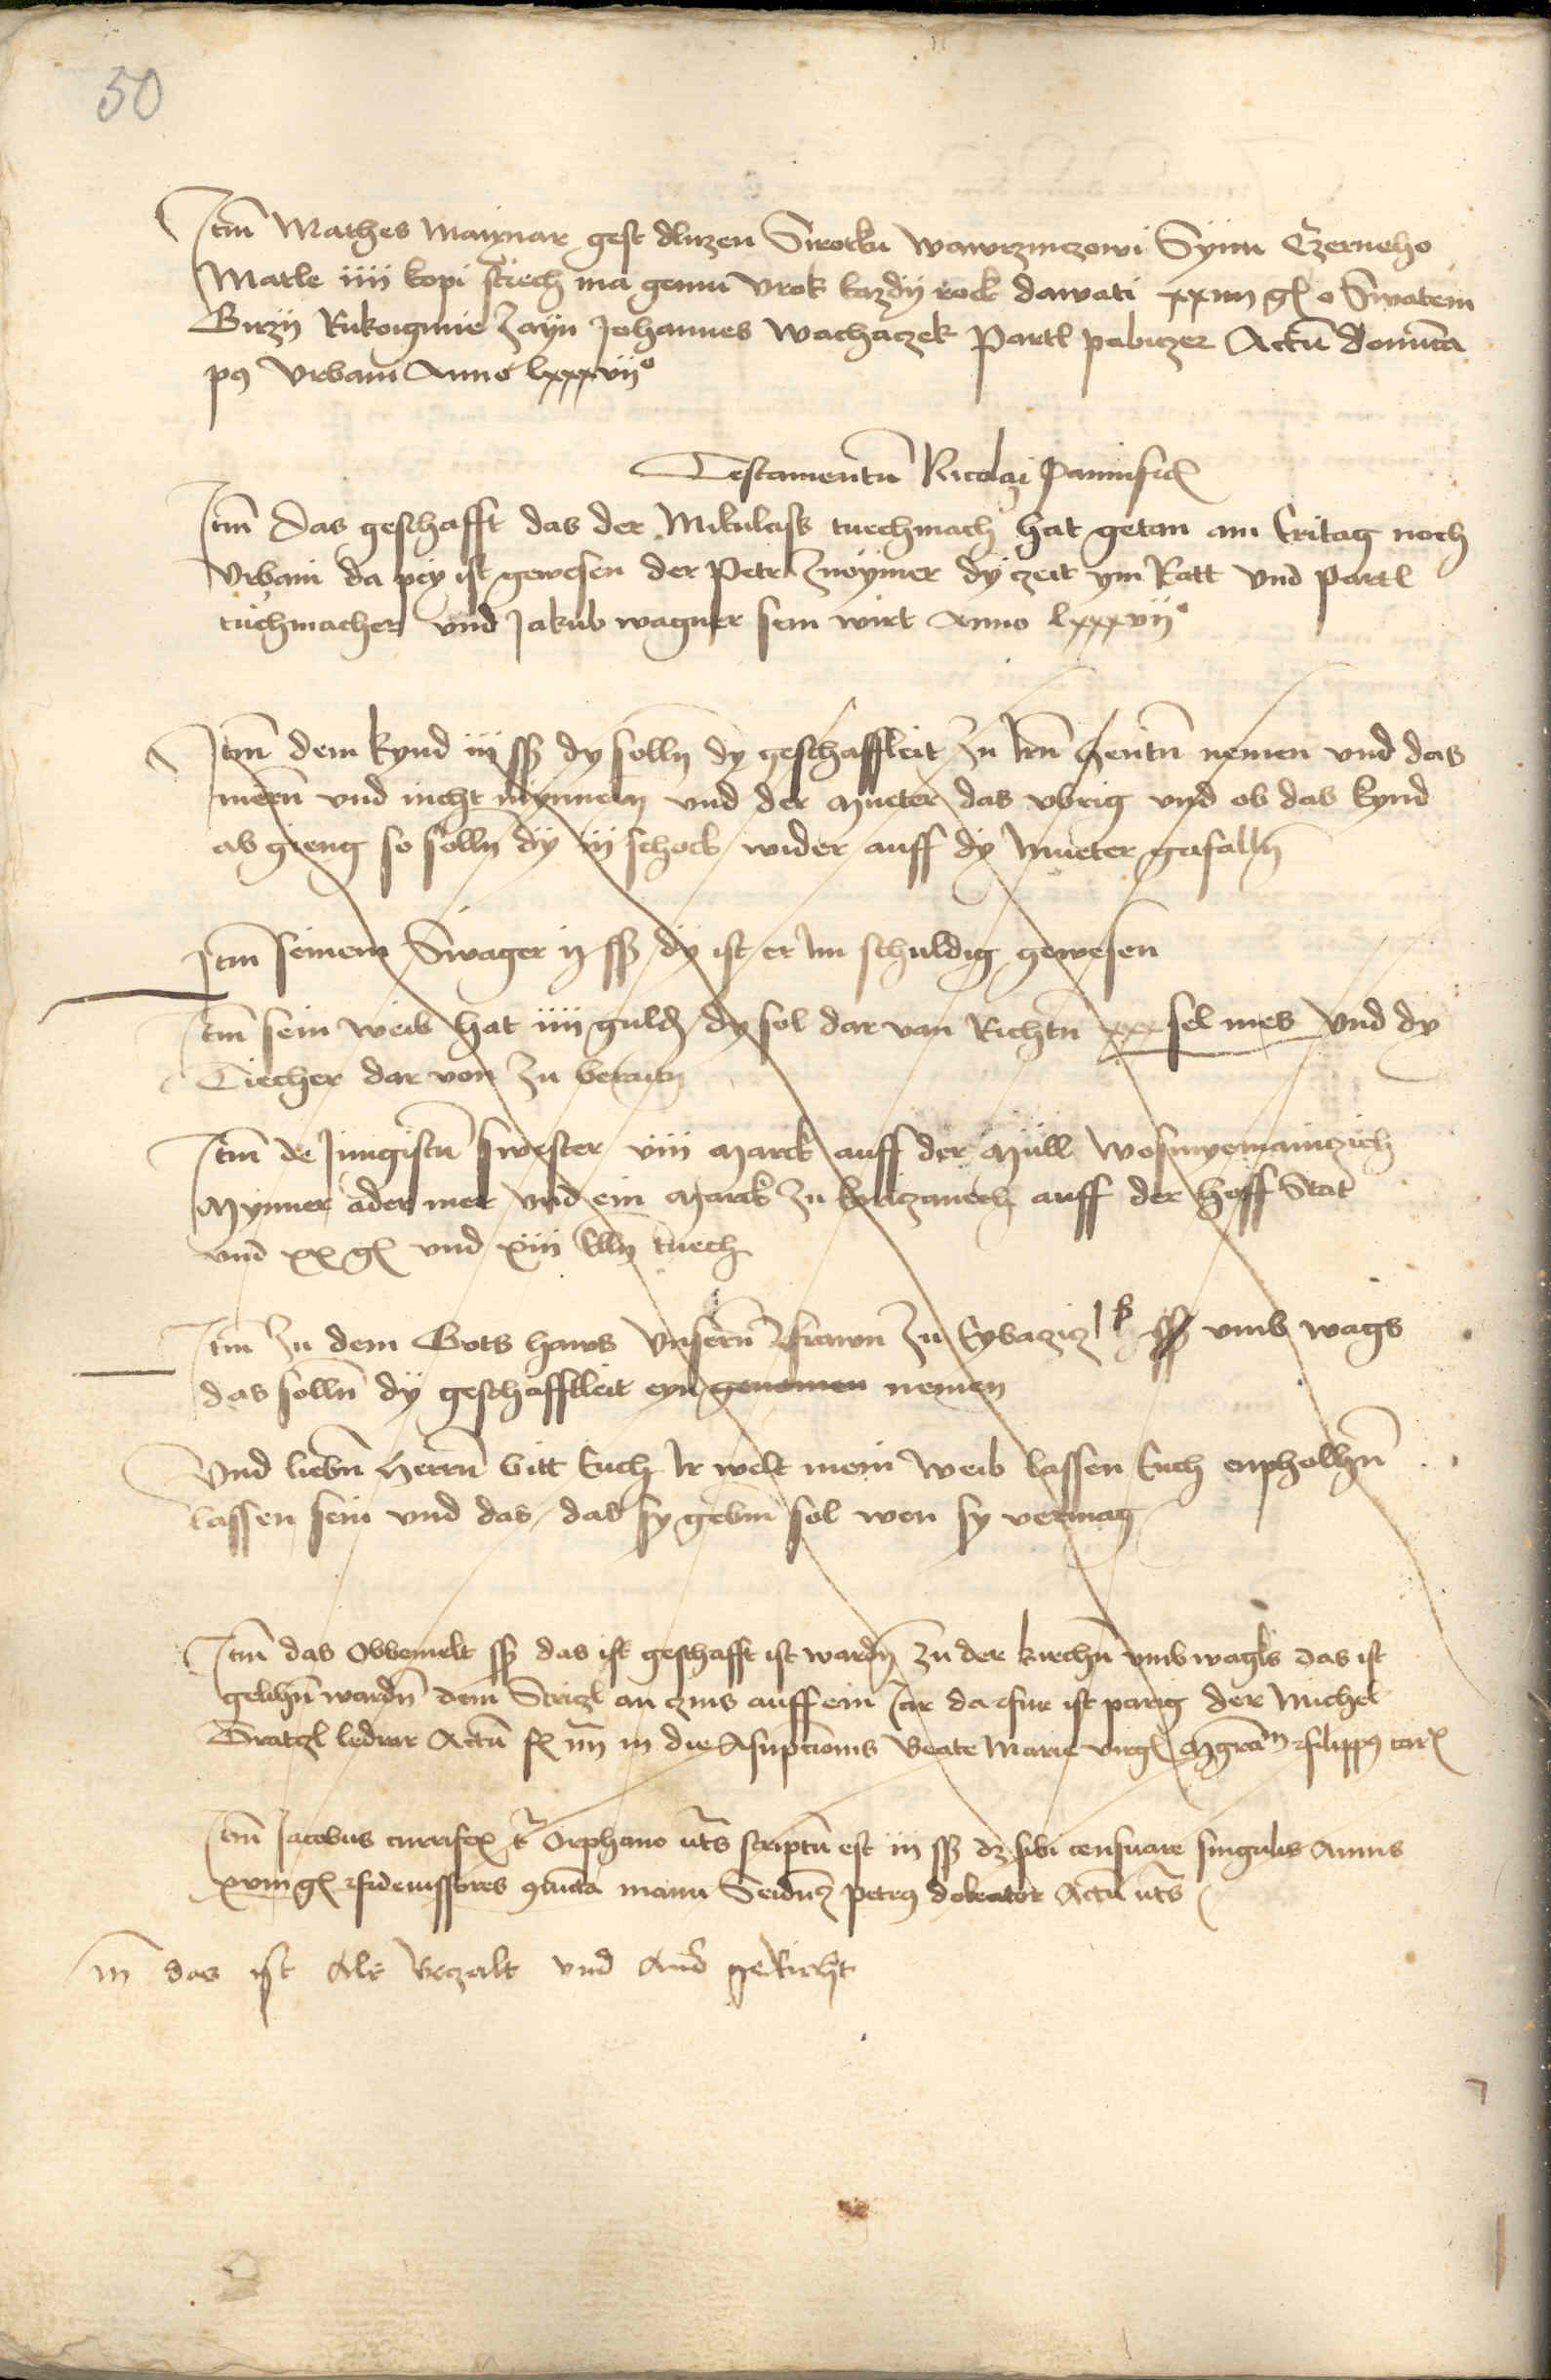 50
Itm Mathes Maixnar gest dluzen Sirotku Wawrzinczowi Synu Czerneho
Matle iiii kopi stiech ma gemu Vrok kazdy rock dawati xxiiii gl o Swatem
Girzij Rukoigmie Zayn Johannes Wachaczek Partl pabiczer Actū domīca
p9 Vrbani Anno lxxxvii°
Testamentū Nicolai Pannific
Itm Das geschafft das der Mikulass tuechmach hat getan am Eritag noch
Vrbani da pey ist gewesen der Petr Znoymer dy czeit ym Ratt vnd Partl
tuchmacher vnd Jakub wagner sein wirt Anno lxxxvii°
Itm dem kynd iij ss dy solln dy geschafftleit zu irn Hentn nemen vnd das
mern vnd nicht mynnern vnd der Mueter das vbrig vnd ob das kynd
ab gieng so solln dy iij schock wider auff dy Mueter gefalln
Itm seinem Swager ij ss dy ist er im schuldig gewesen
Itm sein weib hat iiii guld dy sol dar van Richtn xxx sel mes vnd dy
Tiecher dar von zu
Itm de Jungistn swester viii Marck auff der Mull
Mynner ader mer vnd ein Marck zu auff der Hoff Stat
vnd xx gl vnd xiii Elln tuech
Itm zu dem Gots haws Vnsern frawn zu ss vmb wags
das solln dy geschafftleit eyn genomen nemen
Vnd liebn Herrn bitt Euch Ir welt mein weib lassen Euch enpholhn
lassen sein vnd das das sy gebm sol wen sy vermag
Itm das Obbemelt ss das ist geschafft ist wardn zu der kirchn vmb wagks das ist
gelihn wardn dem Striczl an czins auff ein Jar da fur ist parig der Michel
Gratzl ledrer Actū f iiii in die Assupcionis Beate Marie virgl
Itm Jacobus currifex Orphano uts scriptū est iii ss dz sibi censuare singulis Annis
xviii gl fideiussores 9iūcta manu Seidncz Petrg doleator Actū uts
Itm das ist Als Beczalt vnd Aus gericht